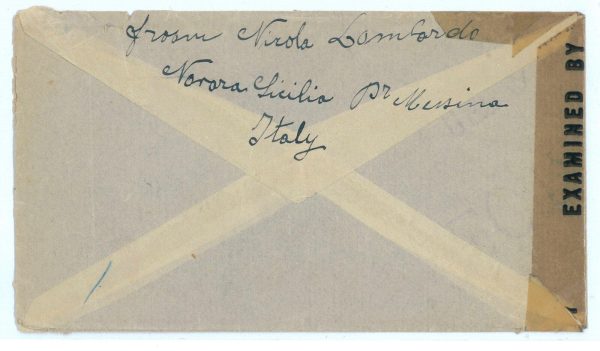 from Nicola Lombardo
Novara Sicilia Pr Messina
Italy
EXAMINED BY